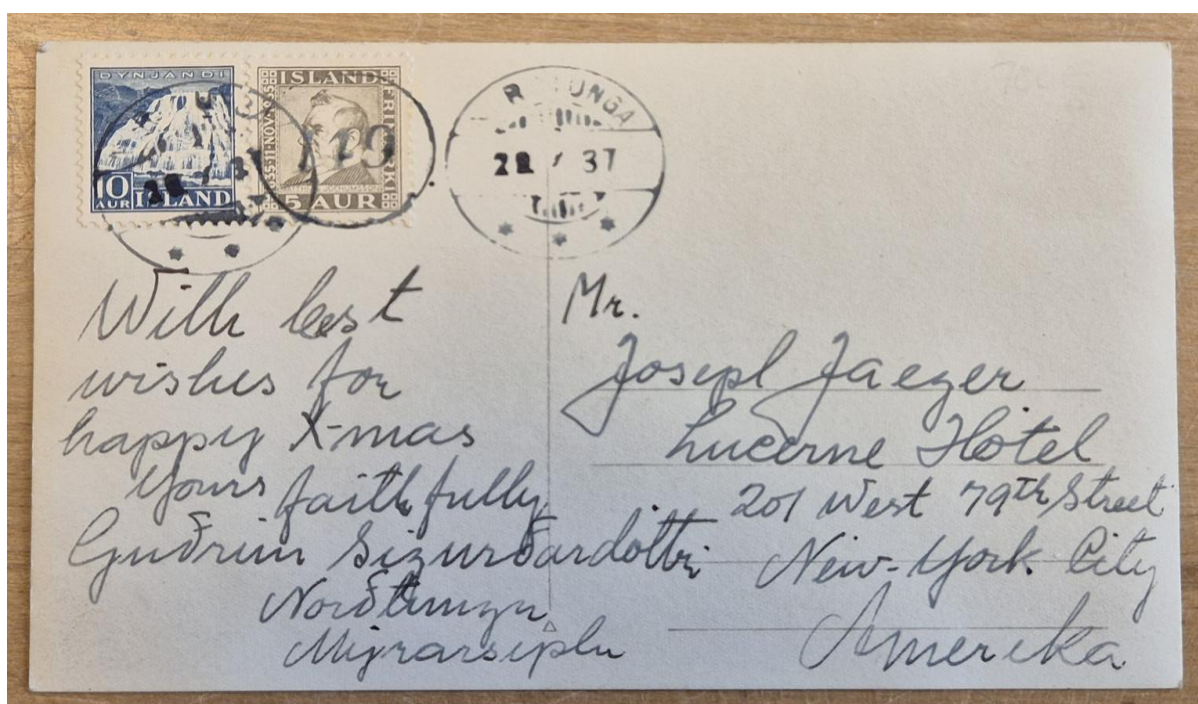 DYNJANDI
10
AUR ISLAND
ISLAND
5 AUR
119
UNGA
37
With best
wishes for
happy X-mas
Yours faithfully
Guðrún Sigurðardóttir
Norðtungu
Mýrarsýslu
Mr.
Joseph Jaeger
Lucerne Hotel
201 West 79th Street
New-York City
Amerika